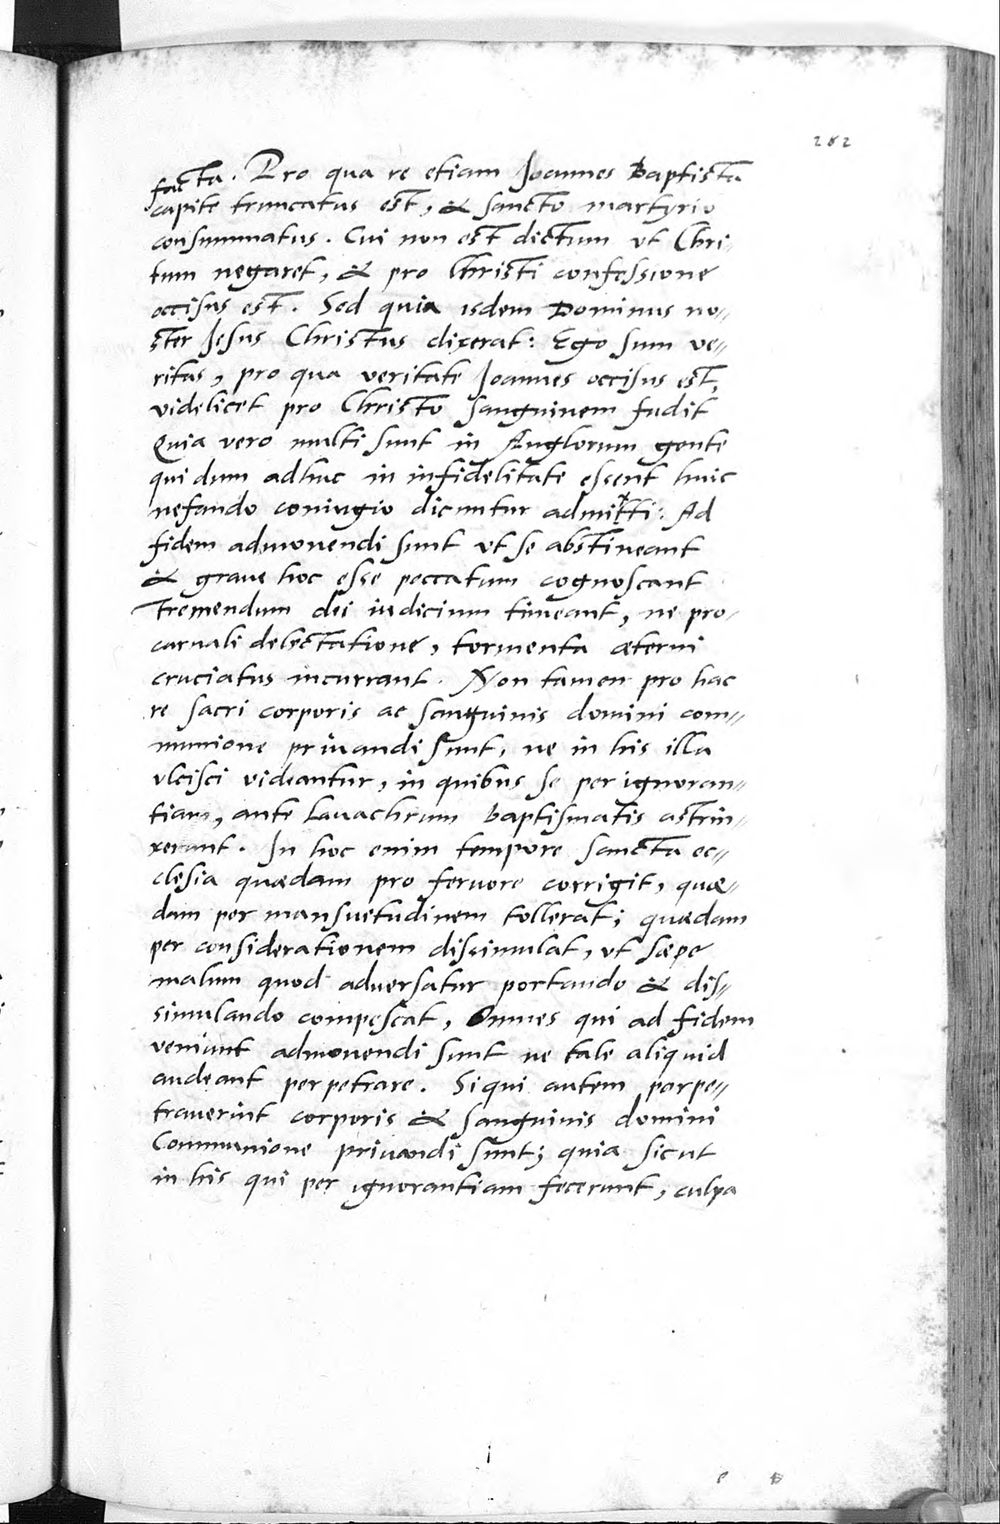 282
facta. Pro qua re etiam Joannes Baptista
capite truncatus est, & sancto martyrio
consummatus. Cui non est dictum ut Chri-
tum negaret, & pro Christi confessione
occisus est. Sed quia isdem Dominus no-
ster Jesus Christus dixerat: Ego sum ve-
ritas, pro qua veritate Joannes occisus est,
videlicet pro Christo sanguinem fudit
Quia vero multi sunt in Anglorum gente
qui dum adhuc in infidelitate essent huic
nefando coniugio dicuntur admitti: Ad
fidem admonendi sunt ut se abstineant
& graue hoc esse peccatum cognoscant
Tremendum dei iudicium timeant, ne pro
carnali delectatione, tormenta æterni
cruciatus incurrant. Non tamen pro hac
re sacri corporis ac sanguinis domini com-
munione priuandi sunt, ne in his illa
vlcisci videantur, in quibus se per ignoran-
tiam, ante Lauachrum baptismatis astrin-
xerunt. In hoc enim tempore sancta ec-
clesia quædam pro feruore corrigit, quæ-
dam per mansuetudinem tollerat; quædam
per considerationem dissimulat, ut sæpe
malum quod aduersatur portando & dis-
simulando compescat, Omnes qui ad fidem
veniunt admonendi sunt ne tale aliquid
audeant perpetrare. Siqui autem perpe-
trauerint corporis & sanguinis domini
Communione priuandi sunt; quia sicut
in his qui per ignorantiam fecerunt, culpa